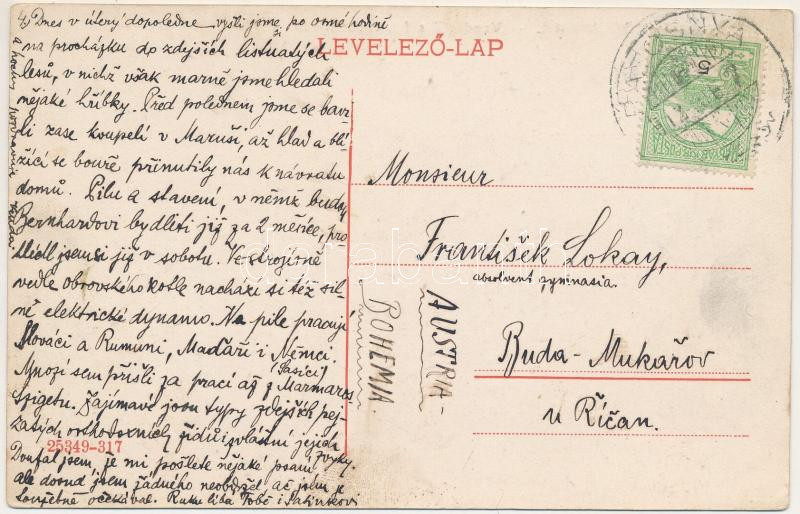 4/ Dnes v úterý dopoledne vyšli jsme po osmé hodině
na procházku do zdejších listnatých
LEVELEZŐ-LAP
lesů, v nichž však marně jsme hledali
nějaké hříbky. Před polednem jsme se
zase koupeli v Maruši, až hlad a blí-
žící se bouře přinutily nás k návratu
domů. Pilu a stavení, v němž budou
Bernhardovi bydleti již za 2 měsíce, pro-
hlédl jsem si již v sobotu. Ve strojovně
vedle obrovského kotle nachází se též sil-
né elektrické dynamo. Na pile pracují
Slováci a Rumuni, Maďaři i Němci.
(Sasíci)
Mnozí sem přišli za prací až z Marmaros
Szigetu. Zajímavé jsou typy zdejších pej-
zatých orthodoxních židů, zvláštní jejich
zvyky.
25349-317
Doufal jsem, že mi pošlete nějaké psaní,
ale dosud jsem žádného neobdržel, ač jsem je
toužebně očekával. Ruku líbá Tobě i Tatínkovi
Monsieur
František Lokay,
absolvent gymnasia.
Buda-Mukařov
u Říčan.
AUSTRIA-
BOHEMA.